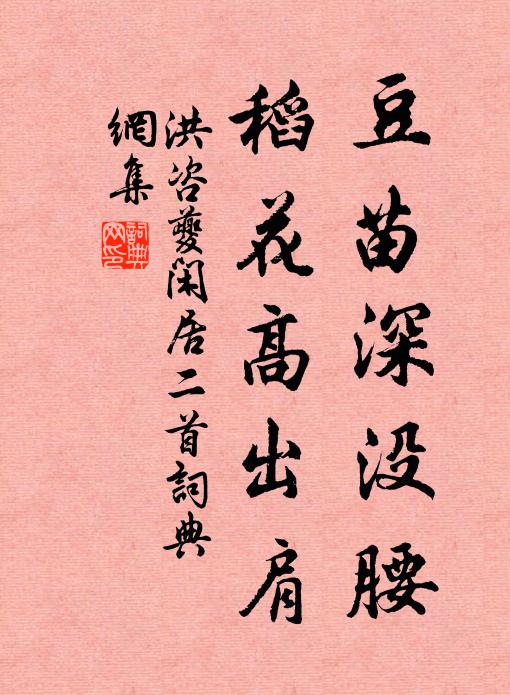 豆苗深没腰
稻花高出肩
洪咨夔閑居二首詞典
網集
詞典
网印